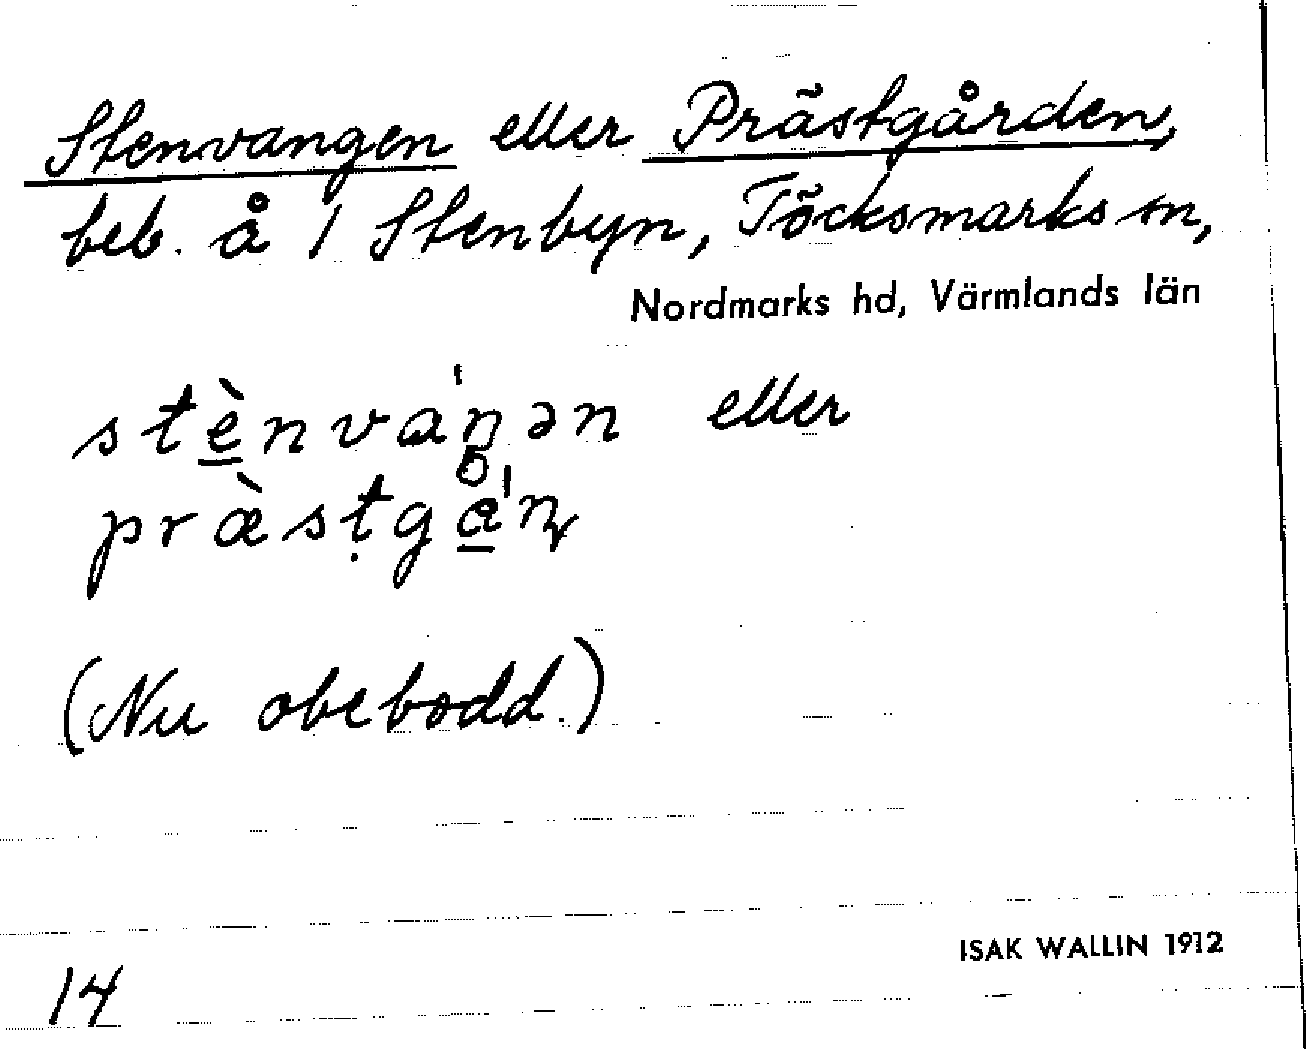 Stenvangen eller Prästgården,
beb. å 1 Stenbyn, Töcksmarks sn,
Nordmarks hd, Värmlands län
stènva'ŋən eller
præ̀sṭgå'ɳ
(Nu obebodd.)
ISAK WALLIN 1912
14